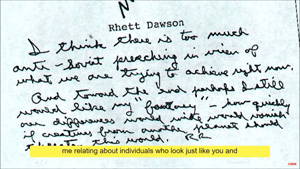 Rhett Dawson
I think there is too much
anti-Soviet preaching in view of
what we are trying to achieve right now.
And toward the end perhaps I still
would like my "fantasy" – how quickly
our differences world wide would vanish
if creatures from another planet should
this world. RR
me relating about individuals who look just like you and